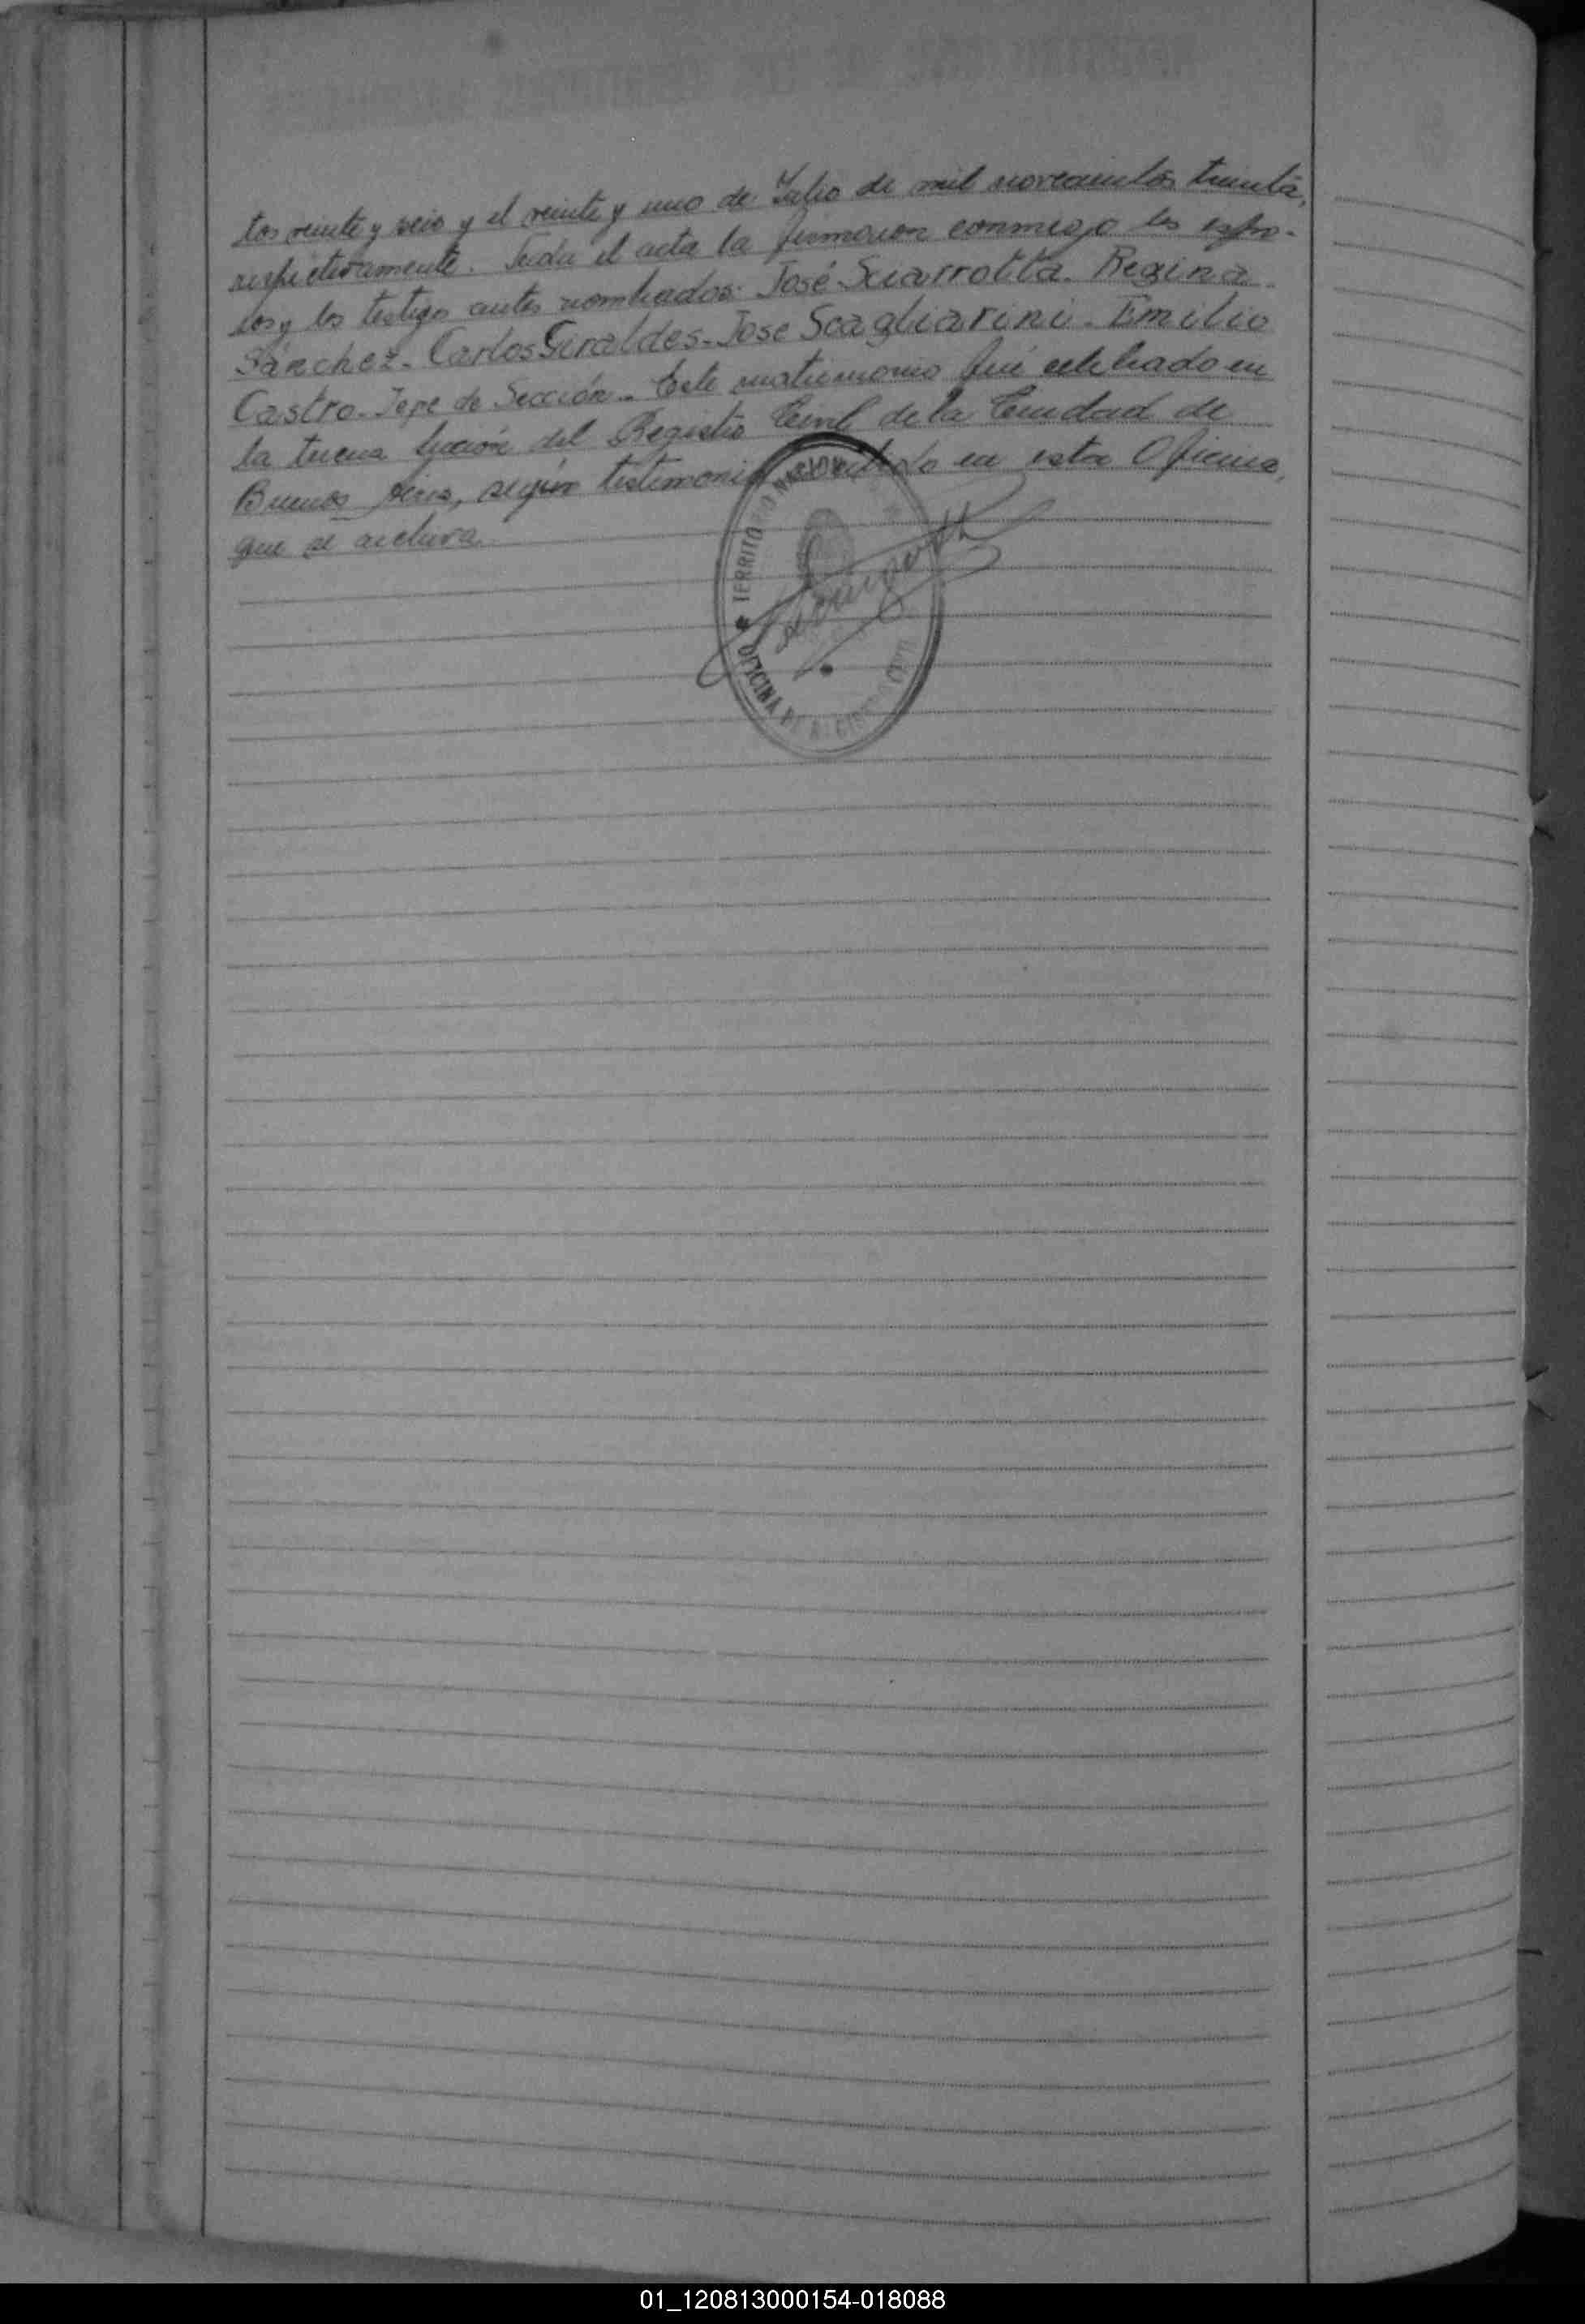 tos veinte y seis y el veinte y uno de Julio de mil novecientos treinta,
respectivamente. Leida el acta la firmaron conmigo los espo-
sos y los testigos antes nombrados: José Sciarrotta. Regina
Sánchez. Carlos Giraldes. Jose Scagliarini. Emilio
Castro. Jefe de Sección. Este matrimonio fué celebrado en
la tercera Sección del Registro Civil de la Ciudad de
Buenos Aires, según testimonio recibido en esta Oficina,
que se archiva.
TERRITORIO NACIONAL
OFICINA DE REGISTRO CIVIL
01_120813000154-018088